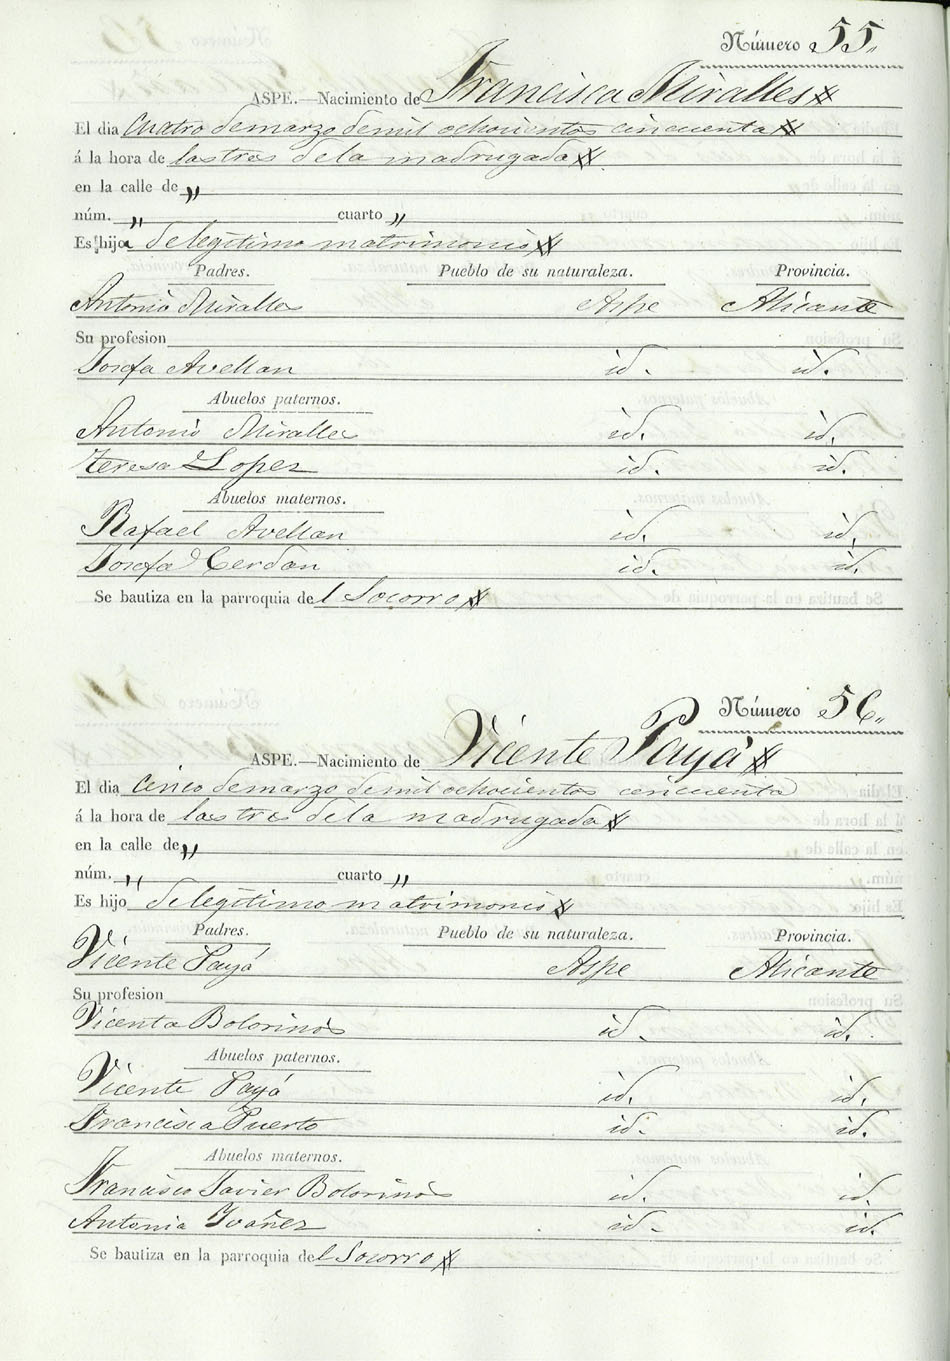 Número 55"
ASPE.—Nacimiento de Francisca Miralles
El dia Cuatro de marzo de mil ochocientos cincuenta
á la hora de las tres de la madrugada
en la calle de "
núm. " cuarto "
Es hija de legítimo matrimonio
Padres. Pueblo de su naturaleza. Provincia.
Antonio Miralles Aspe Alicante
Su profesion
Josefa Avellan id. id.
Abuelos paternos.
Antonio Miralles id. id.
Teresa Lopez id. id.
Abuelos maternos.
Rafael Avellan id. id.
Josefa Cerdan id. id.
Se bautiza en la parroquia del Socorro
Número 56"
ASPE.—Nacimiento de Vicente Payá
El dia cinco de marzo de mil ochocientos cincuenta
á la hora de las tres de la madrugada
en la calle de "
núm. " cuarto "
Es hijo de legítimo matrimonio
Padres. Pueblo de su naturaleza. Provincia.
Vicente Payá Aspe Alicante
Su profesion
Vicenta Bolorinos id. id.
Abuelos paternos.
Vicente Payá id. id.
Francisca Puerto id. id.
Abuelos maternos.
Francisco Javier Bolorinos id. id.
Antonia Ivañez id. id.
Se bautiza en la parroquia del Socorro